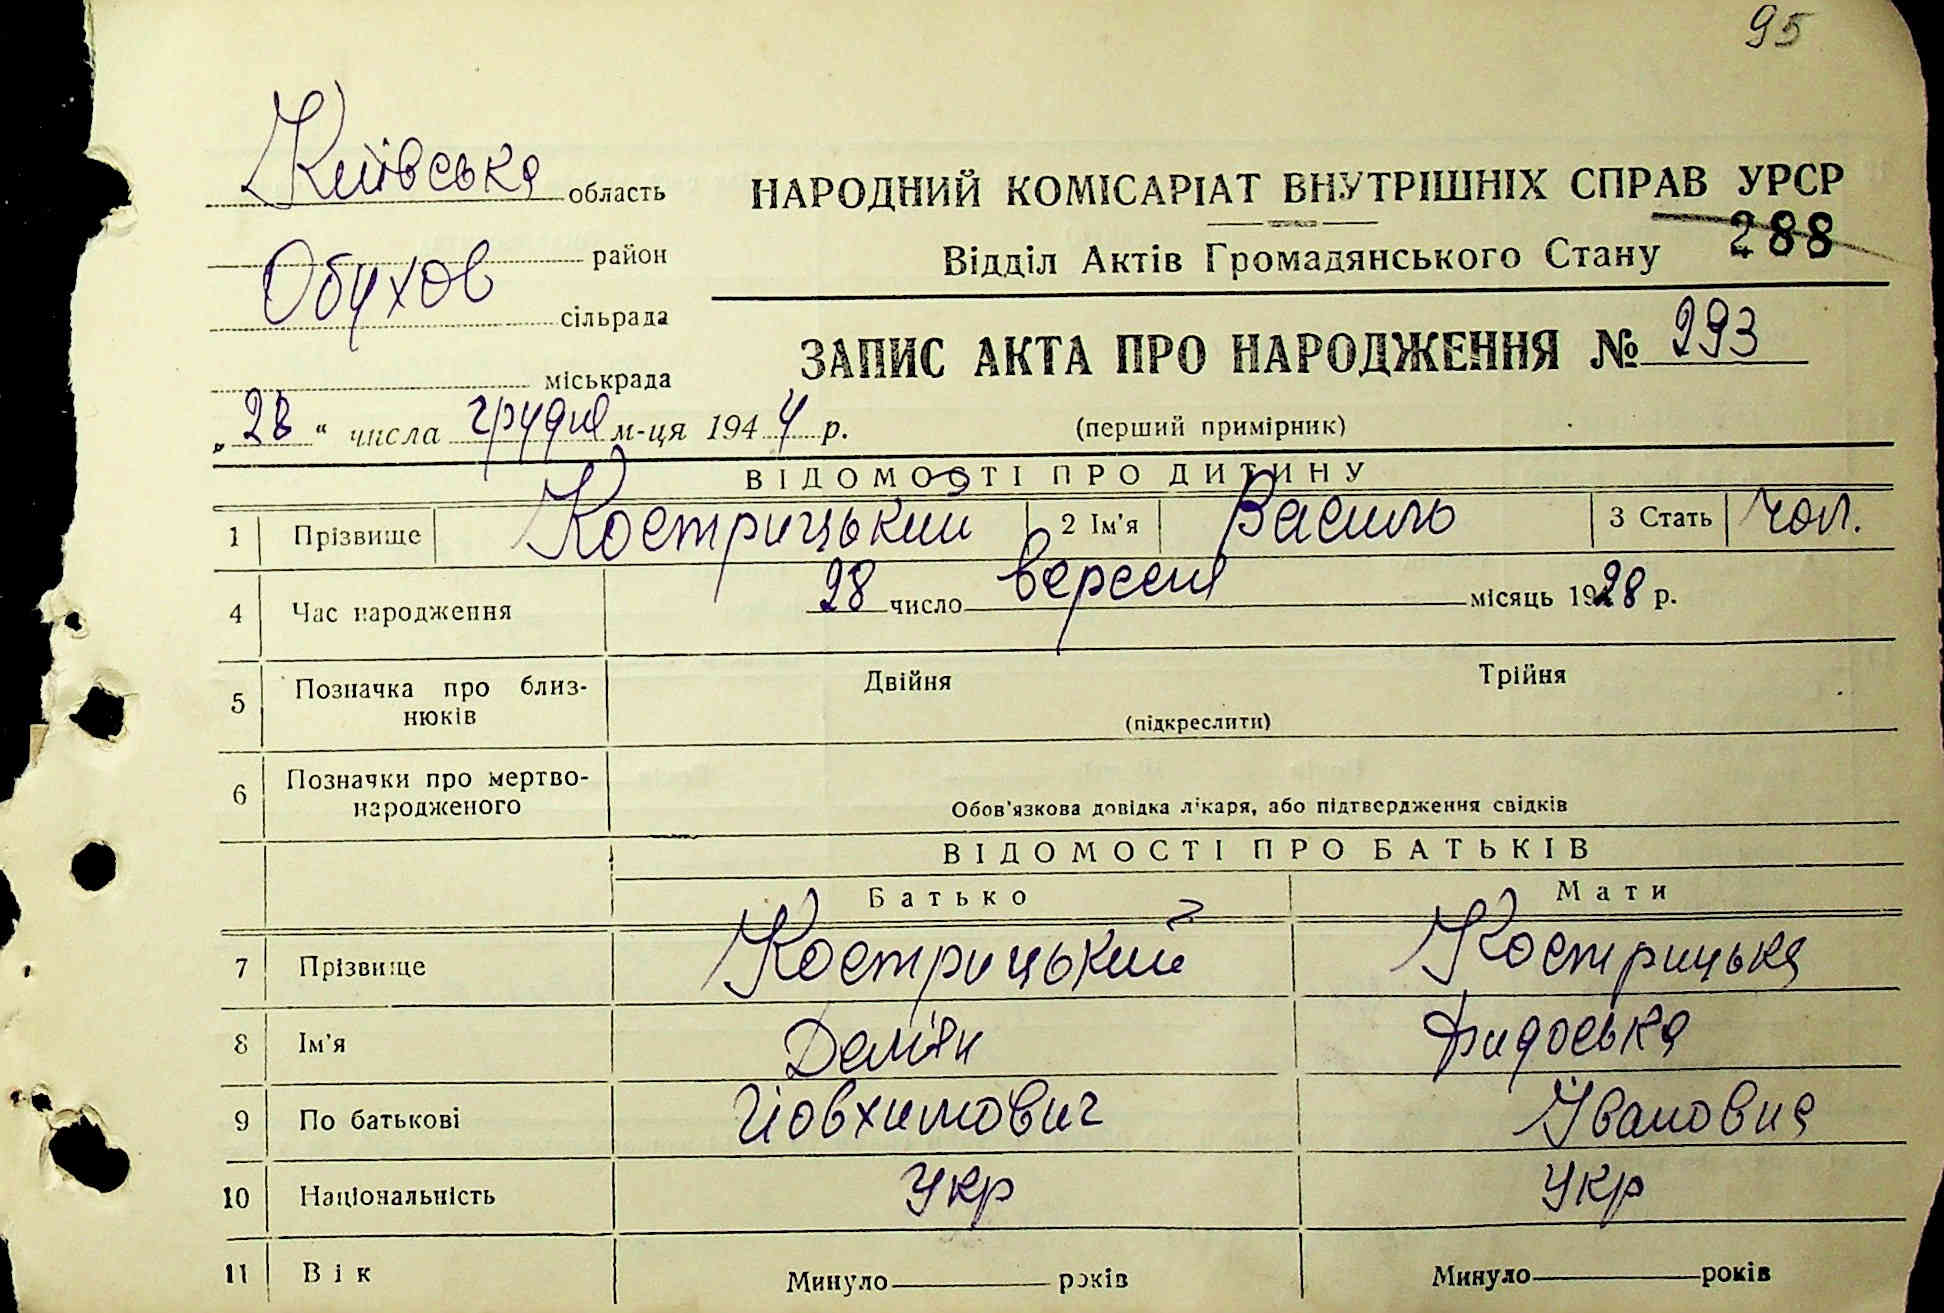 95
Київська область
НАРОДНИЙ КОМІСАРІАТ ВНУТРІШНІХ СПРАВ УРСР
288
район
Відділ Актів Громадянського Стану
Обухов
сільрада
ЗАПИС АКТА ПРО НАРОДЖЕННЯ № 293
міськрада
„28“ числа грудня м-ця 1944 р.
(перший примірник)
ВІДОМОСТІ ПРО ДИТИНУ
1 Прізвище Кострицький 2 Ім'я Василь 3 Стать чол.
4 Час народження 28 число вересня місяць 1928 р.
5 Позначка про близ-
нюків
Двійня Трійня
(підкреслити)
6 Позначки про мертво-
народженого
Обов'язкова довідка лікаря, або підтвердження свідків
ВІДОМОСТІ ПРО БАТЬКІВ
Батько Мати
7 Прізвище Кострицький Кострицька
8 Ім'я Дем'ян Фидоська
9 По батькові Йовхимович Івановна
10 Національність Укр Укр
11 Вік Минуло років Минуло років